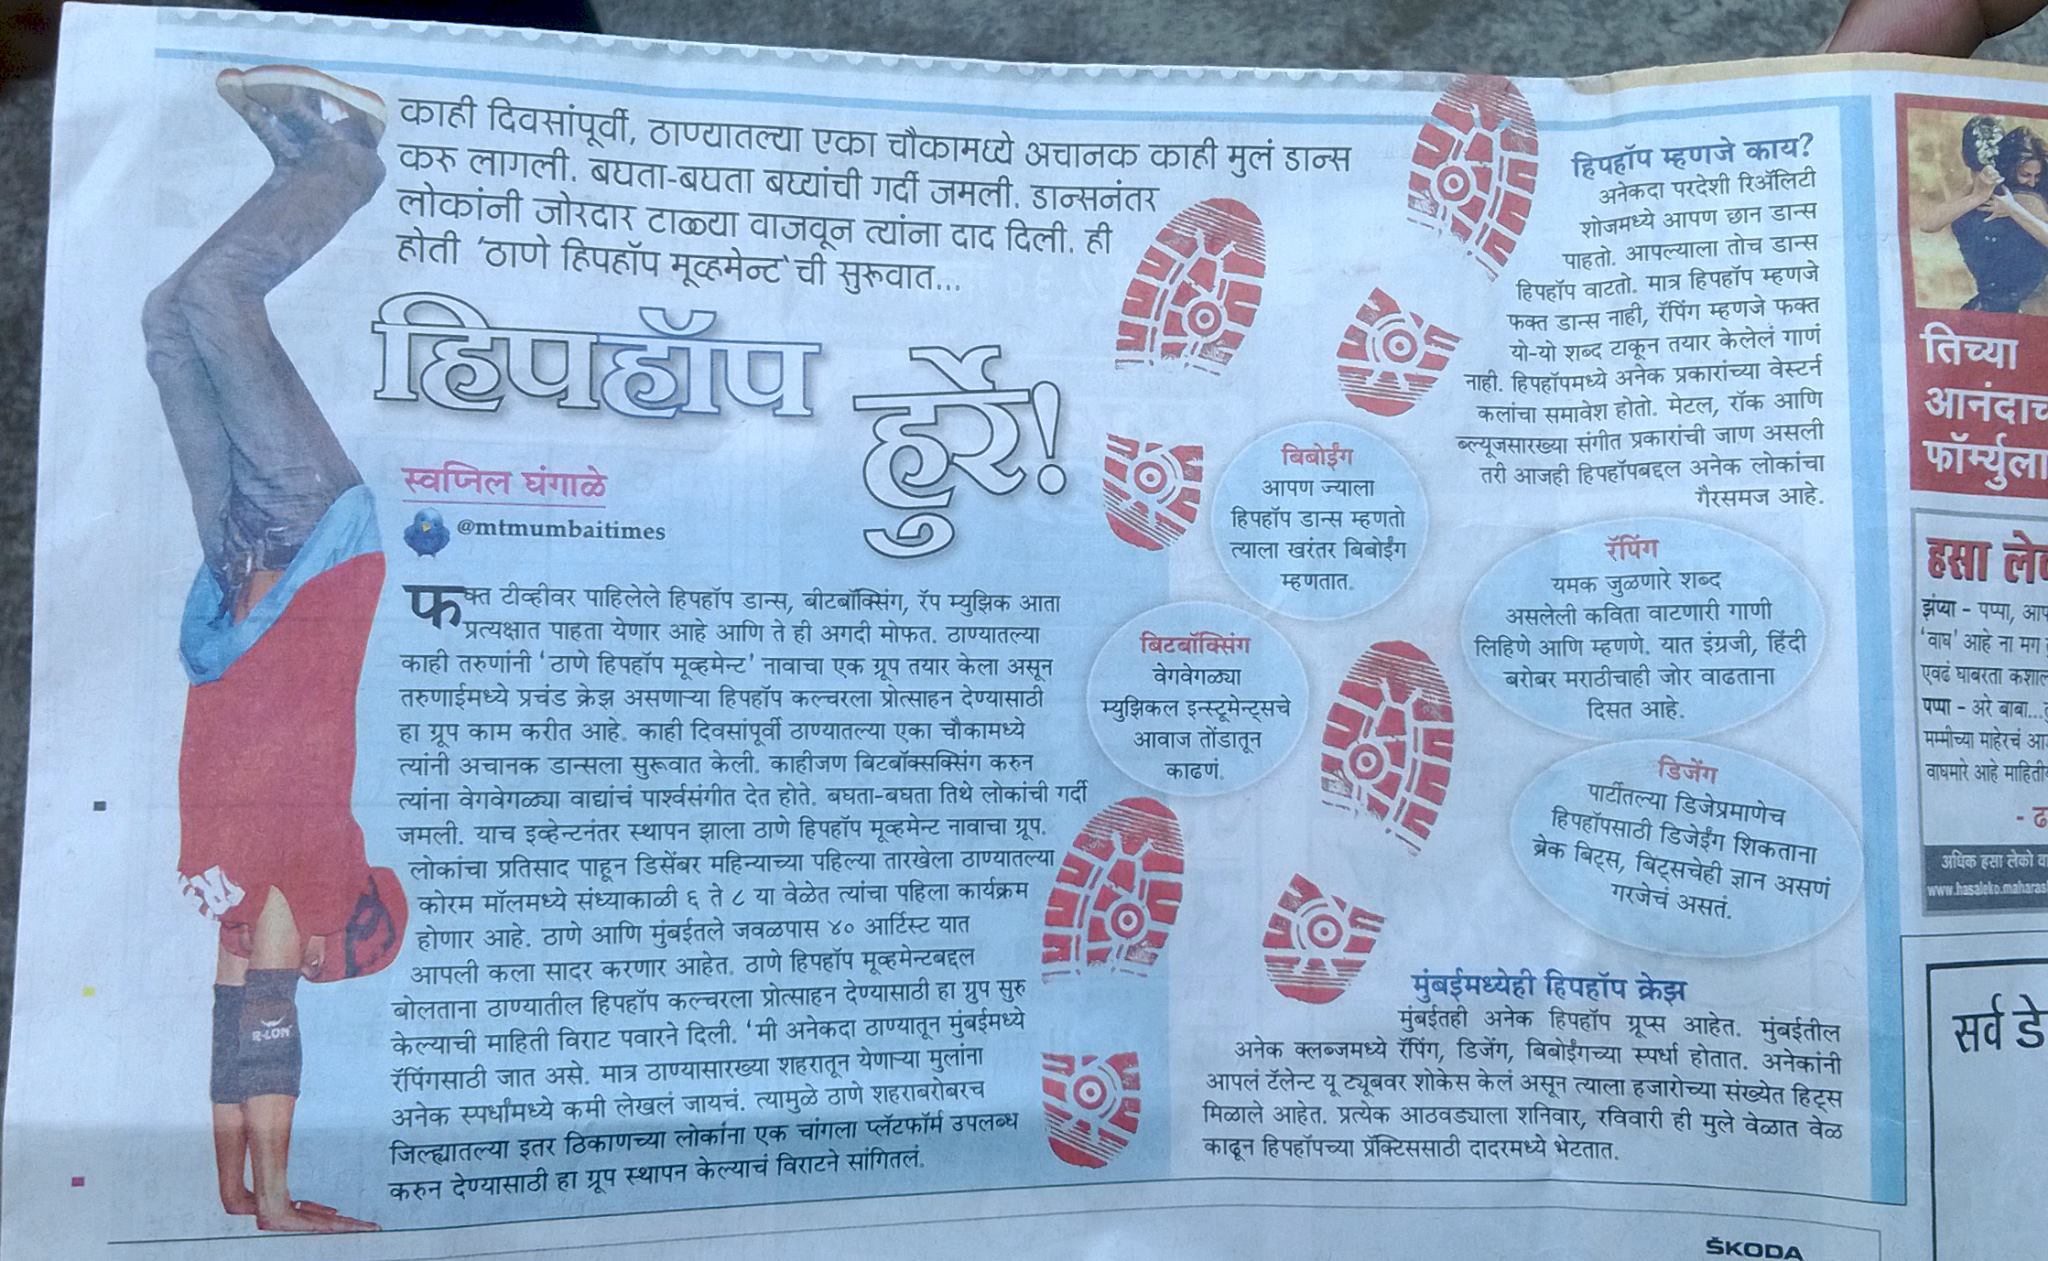 काही दिवसांपूर्वी, ठाण्यातल्या एका चौकामध्ये अचानक काही मुलं डान्स
करु लागली. बघता-बघता बघ्यांची गर्दी जमली. डान्सनंतर
लोकांनी जोरदार टाळ्या वाजवून त्यांना दाद दिली. ही
होती 'ठाणे हिपहॉप मूव्हमेन्ट'ची सुरूवात...
हिपहॉप हुर्रे!
स्वप्निल घंगाळे
@mtmumbaitimes
फक्त टीव्हीवर पाहिलेले हिपहॉप डान्स, बीटबॉक्सिंग, रॅप म्युझिक आता
प्रत्यक्षात पाहता येणार आहे आणि ते ही अगदी मोफत. ठाण्यातल्या
काही तरुणांनी 'ठाणे हिपहॉप मूव्हमेन्ट' नावाचा एक ग्रूप तयार केला असून
तरुणाईमध्ये प्रचंड क्रेझ असणाऱ्या हिपहॉप कल्चरला प्रोत्साहन देण्यासाठी
हा ग्रूप काम करीत आहे. काही दिवसांपूर्वी ठाण्यातल्या एका चौकामध्ये
त्यांनी अचानक डान्सला सुरूवात केली. काहीजण बिटबॉक्सक्सिंग करुन
त्यांना वेगवेगळ्या वाद्यांचं पार्श्वसंगीत देत होते. बघता-बघता तिथे लोकांची गर्दी
जमली. याच इव्हेन्टनंतर स्थापन झाला ठाणे हिपहॉप मूव्हमेन्ट नावाचा ग्रूप.
लोकांचा प्रतिसाद पाहून डिसेंबर महिन्याच्या पहिल्या तारखेला ठाण्यातल्या
कोरम मॉलमध्ये संध्याकाळी ६ ते ८ या वेळेत त्यांचा पहिला कार्यक्रम
होणार आहे. ठाणे आणि मुंबईतले जवळपास ४० आर्टिस्ट यात
आपली कला सादर करणार आहेत. ठाणे हिपहॉप मूव्हमेन्टबद्दल
बोलताना ठाण्यातील हिपहॉप कल्चरला प्रोत्साहन देण्यासाठी हा ग्रुप सुरु
केल्याची माहिती विराट पवारने दिली. 'मी अनेकदा ठाण्यातून मुंबईमध्ये
रॅपिंगसाठी जात असे. मात्र ठाण्यासारख्या शहरातून येणाऱ्या मुलांना
अनेक स्पर्धांमध्ये कमी लेखलं जायचं. त्यामुळे ठाणे शहराबरोबरच
जिल्ह्यातल्या इतर ठिकाणच्या लोकांना एक चांगला प्लॅटफॉर्म उपलब्ध
करुन देण्यासाठी हा ग्रूप स्थापन केल्याचं विराटने सांगितलं.
R-LON
बिबोईंग
आपण ज्याला
हिपहॉप डान्स म्हणतो
त्याला खरंतर बिबोईंग
म्हणतात.
बिटबॉक्सिंग
वेगवेगळ्या
म्युझिकल इन्स्ट्रूमेन्ट्सचे
आवाज तोंडातून
काढणं.
हिपहॉप म्हणजे काय?
अनेकदा परदेशी रिअॅलिटी
शोजमध्ये आपण छान डान्स
पाहतो. आपल्याला तोच डान्स
हिपहॉप वाटतो. मात्र हिपहॉप म्हणजे
फक्त डान्स नाही, रॅपिंग म्हणजे फक्त
यो-यो शब्द टाकून तयार केलेलं गाणं
नाही. हिपहॉपमध्ये अनेक प्रकारांच्या वेस्टर्न
कलांचा समावेश होतो. मेटल, रॉक आणि
ब्ल्यूजसारख्या संगीत प्रकारांची जाण असली
तरी आजही हिपहॉपबद्दल अनेक लोकांचा
गैरसमज आहे.
रॅपिंग
यमक जुळणारे शब्द
असलेली कविता वाटणारी गाणी
लिहिणे आणि म्हणणे. यात इंग्रजी, हिंदी
बरोबर मराठीचाही जोर वाढताना
दिसत आहे.
डिजेंग
पार्टीतल्या डिजेप्रमाणेच
हिपहॉपसाठी डिजेईंग शिकताना
ब्रेक बिट्स, बिट्सचेही ज्ञान असणं
गरजेचं असतं.
मुंबईमध्येही हिपहॉप क्रेझ
मुंबईतही अनेक हिपहॉप ग्रूप्स आहेत. मुंबईतील
अनेक क्लब्जमध्ये रॅपिंग, डिजेंग, बिबोईंगच्या स्पर्धा होतात. अनेकांनी
आपलं टॅलेन्ट यू ट्यूबवर शोकेस केलं असून त्याला हजारोच्या संख्येत हिट्स
मिळाले आहेत. प्रत्येक आठवड्याला शनिवार, रविवारी ही मुले वेळात वेळ
काढून हिपहॉपच्या प्रॅक्टिससाठी दादरमध्ये भेटतात.
तिच्या
आनंदाच
फॉर्म्युला
हसा ले
झंप्या - पप्पा, आप
'वाघ' आहे ना मग
एवढं घाबरता कशाल
पप्पा - अरे बाबा...
मम्मीच्या माहेरचं आ
वाघमारे आहे माहिती
- ढ
अधिक हसा लेको वा
www.hasaleko.maharas
सर्व डे
ŠKODA